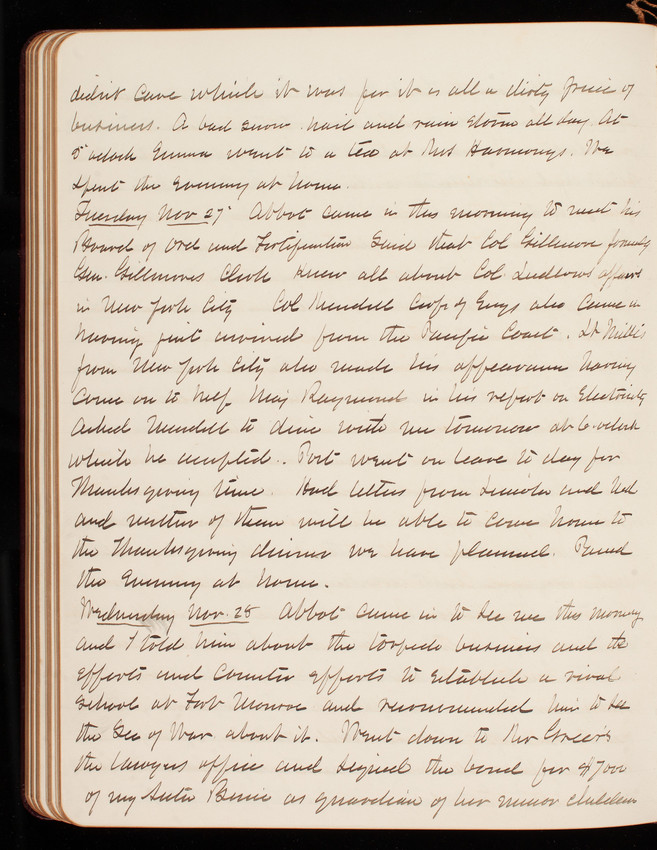 didn't care which it was for it is all a dirty piece of
business. A bad snow hail and rain storm all day. At
5 oclock Emma went to a tea at Mrs Harmonys. We
spent the evening at home.
Tuesday Nov 27 Abbot came in this morning to meet his
Board of Ord and Fortification Said that Col Gillmore formerly
Gen. Gillmores Clerk knew all about Col Ludlows affairs
in New York City Col Mendell Corps of Engrs also came in
having just arrived from the Pacific Coast. Lt Willis
from New York City also made his appearance having
come on to help Maj Raymond in his report on Electricity
Asked Mendell to dine with me tomorrow at 6 oclock
which he accepted. Port went on leave to day for
Thanksgiving time. Had letters from Lincoln and Ned
and neither of them will be able to come home to
the Thanksgiving dinner we have planned. Passed
the Evening at home.
Wednesday Nov. 28 Abbot came in to see me this morning
and I told him about the torpedo business and the
efforts and counter efforts to establish a rival
school at Fort Monroe and recommended him to see
the Sec of War about it. Went down to Mr Greer's
the lawyers office and signed the bond for $7000
of my Sister as guardian of her minor children